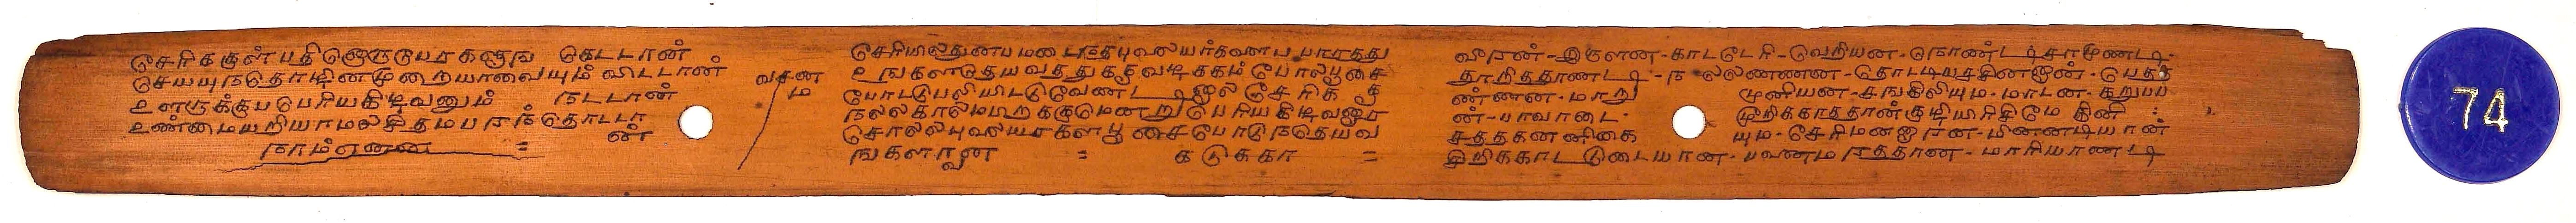 சேரிக்குள் பதினொருபேர்களும் கெட்டான்
செய்யுந்தொழின்முறையாவையும் விட்டான்
உளருக்கு பெரியகிழவனும் நட்டான்
உண்மையறியாமல் சிதம்பரந் தொட்டா
ன்
நாம்ஏன்ன =
வசன
ம
சேரியில்துன்பமடைந்த புலையர்தளைப்பார்த்து
உங்களடுதயவத்துக்குவடிக்கம் போல்பூசை
போட்டு பலியிட்டு வேண்டினால் சேரிக்கு
நல்லகாலம்பிறக்குமென்று பெரியகிழவனுஞ்
சொல்லபுலையர்கள் பூசைபோடுந்தெய்வ
ங்களாவன = கடுக்கா =
வீரன்-இருளன்-காட்டேரி-வெறியன்-நொண்டிசாமுண்டி-
தூறித்தாண்டி-நல்லண்ணன்-தொட்டியச்சின்னான்-பெத்த
ண்ணன்-மாறு முனியன்-சங்கிலியும்-மாடன்-கறுப்ப
ன்-பாவாடை- முறிகாத்தான்குழியிரிசிமே தினி :
சத்தகன்னிகை யும்-சேரிமணஐரன்-மின்னடியான்
திறிக்காட்டுடையான்-பவனமநத்தான்-மாரியாண்டி
74